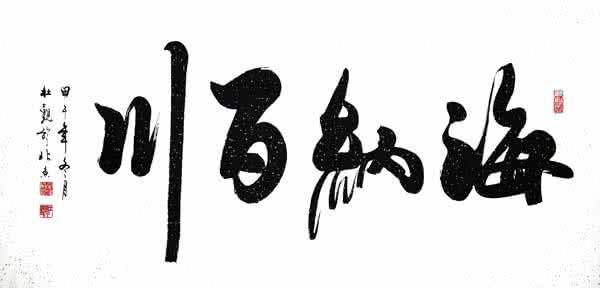 海纳百川
甲午年冬月
杜巍於北京